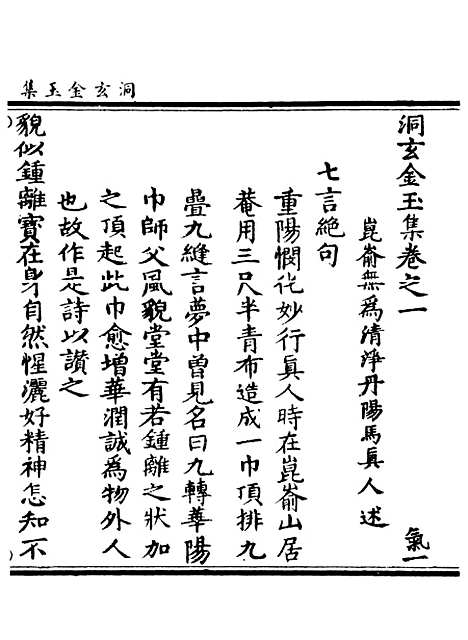 洞玄金玉集
洞玄金玉集卷之一 氣一
崑崳無為清淨丹陽馬眞人述
七言絕句
重陽憫化妙行眞人時在崑崳山居
菴用三尺半青布造成一巾頂排九
疊九縫言夢中曽見名曰九轉華陽
巾師父風貌堂堂有若鍾離之狀加
之頂起此巾愈增華潤誠為物外人
也故作是詩以讃之
貌似鍾離寳在身自然惺灑好精神怎知不